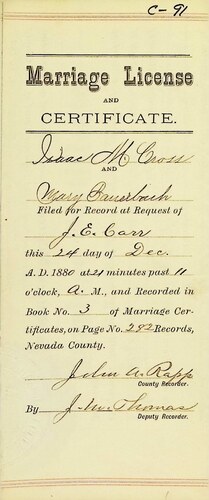 C-91
Marriage License
AND
CERTIFICATE.
Isaac M Cross
AND
Mary Bauerbach
Filed for Record at Request of
J. E. Carr
this 24 day of Dec.
A. D. 1880 at 21 minutes past 11
o'clock, A. M., and Recorded in
Book No. 3 of Marriage Cer-
tificates, on Page No. 282 Records,
Nevada County.
John A. Rapp
County Recorder.
By J. W. Thomas
Deputy Recorder.